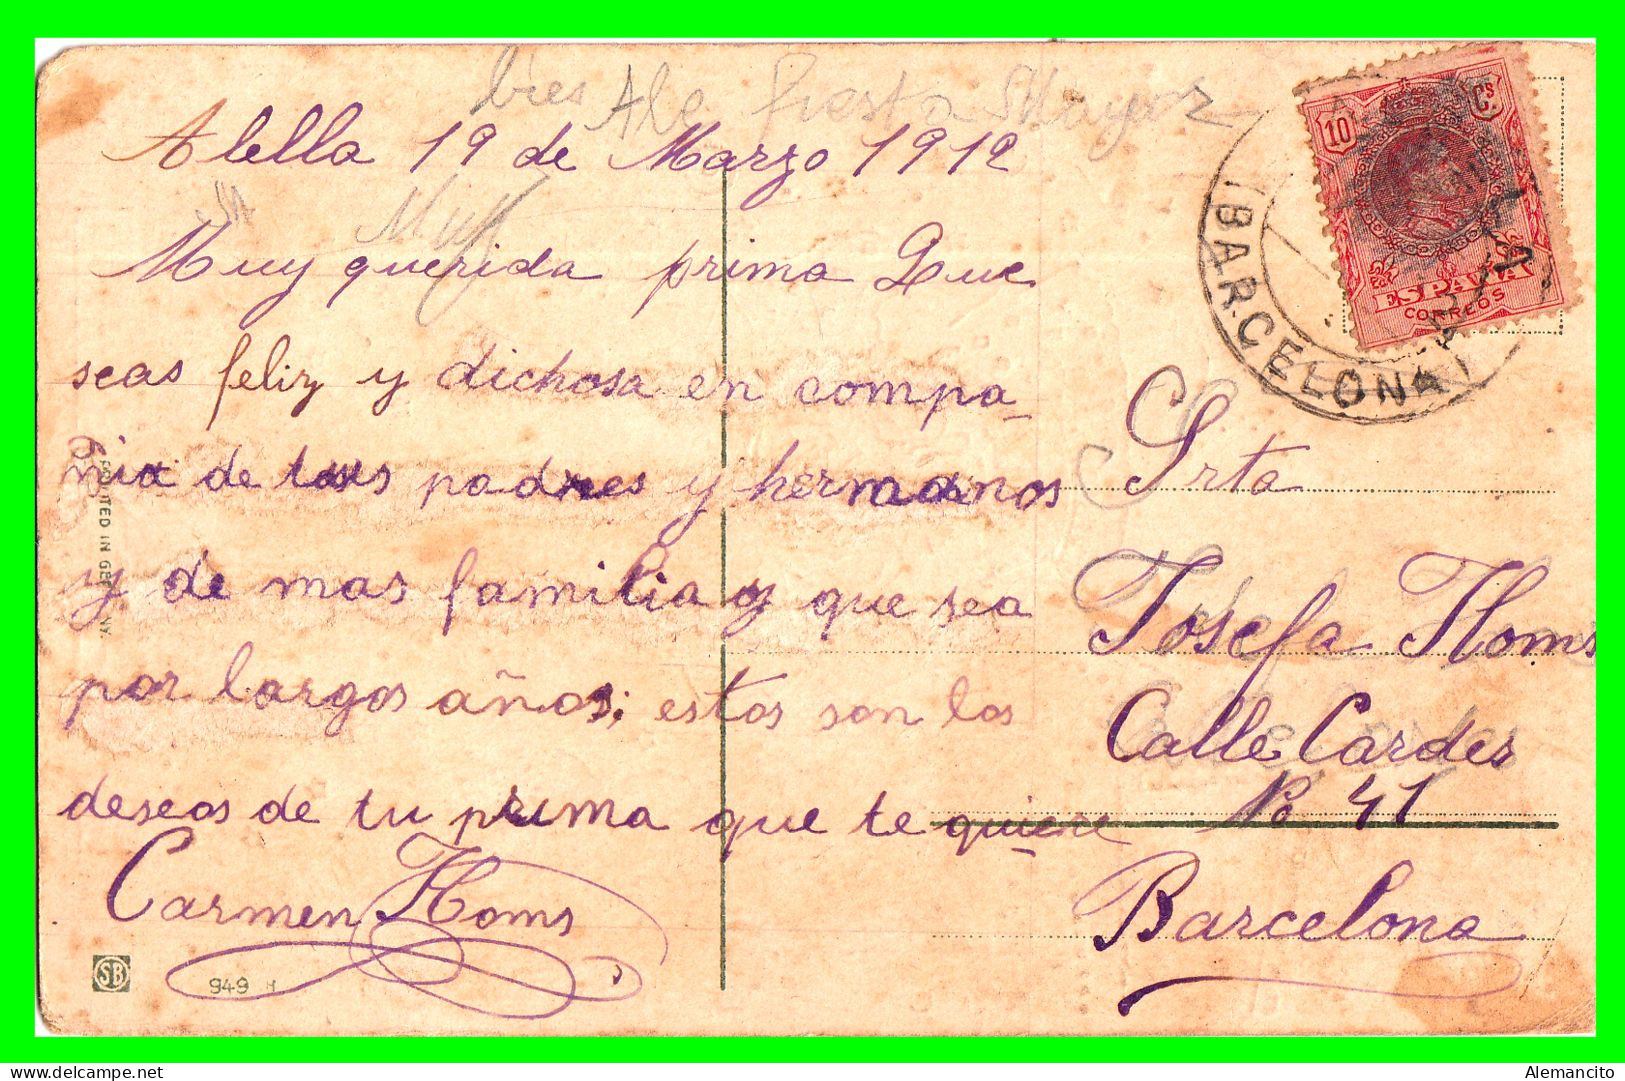 Ale fiesta Mayor
Alella 19 de Marzo 1912
Muy
Muy querida prima Que
seas feliz y dichosa en compa-
nia de tus padres y hermanos
y de mas familia y que sea
por largos años; estos son los
deseos de tu prima que te quiere
Carmen Homs
PRINTED IN GERMANY
SB
949
10 Cs
ESPAÑA
CORREOS
BARCELONA
Srta
Josefa Homs
Calle Cardes
No 41
Barcelona
Alemancito